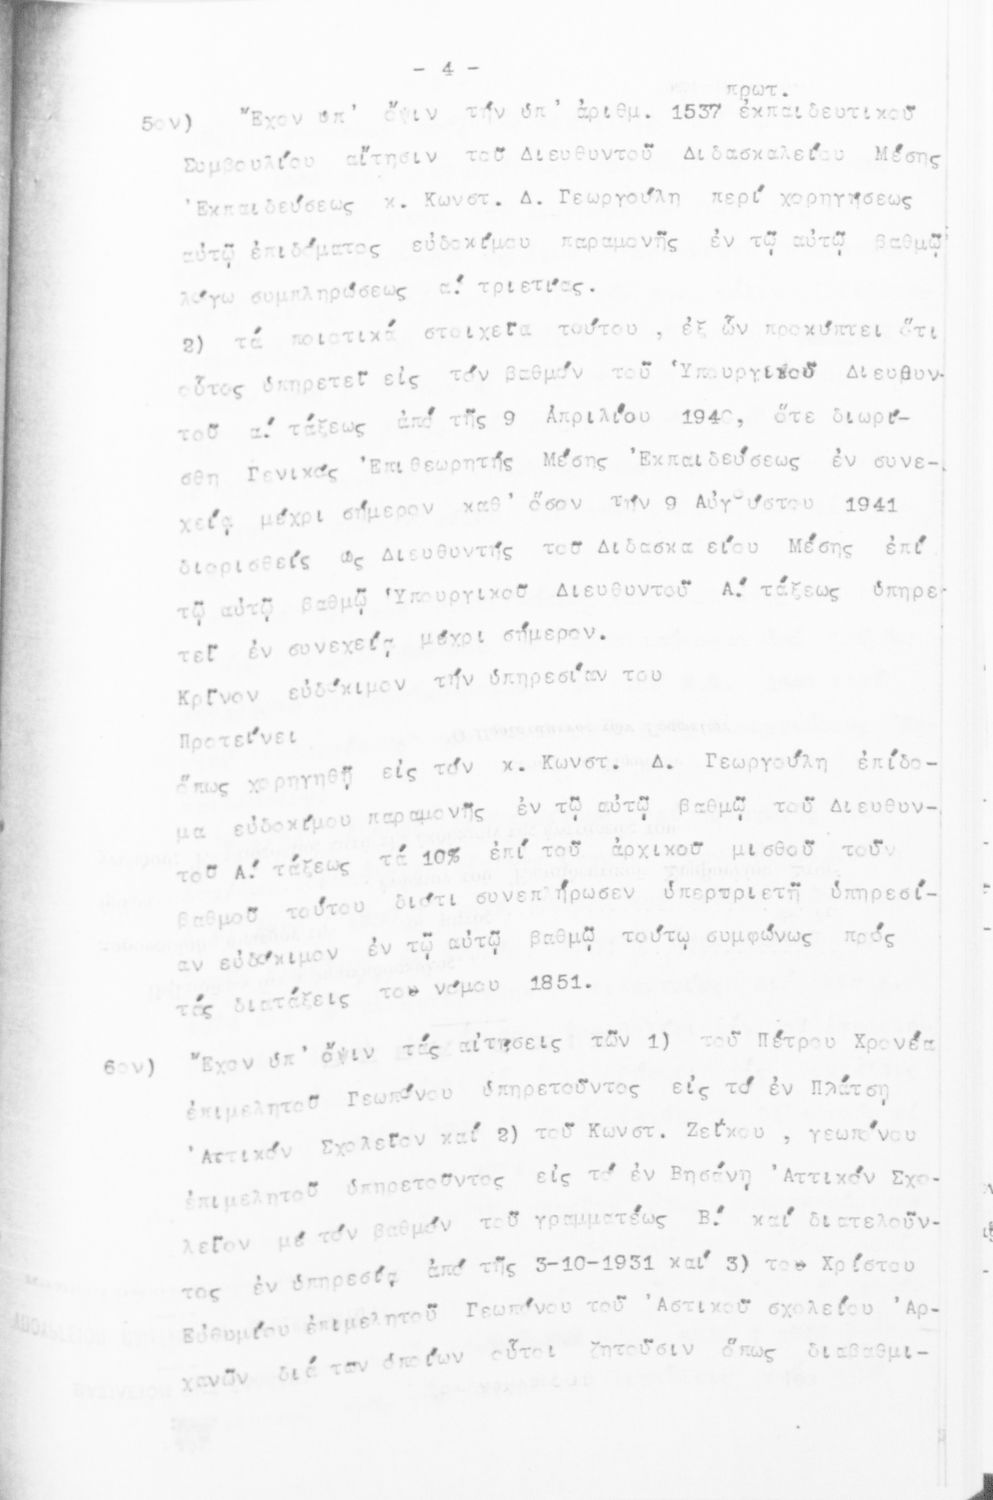 - 4 -
πρωτ.
5ον) Ἔχον ὑπ' ὄψιν τήν ὑπ' ἀριθμ. 1537 ἐκπαιδευτικοῦ
Συμβουλίου αἴτησιν τοῦ Διευθυντοῦ Διδασκαλείου Μέσης
Ἐκπαιδεύσεως κ. Κωνστ. Δ. Γεωργούλη περί χορηγήσεως
αὐτῷ ἐπιδόματος εὐδοκίμου παραμονῆς ἐν τῷ αὐτῷ βαθμῷ
λόγω συμπληρώσεως α.' τριετίας.
2) τά ποιοτικά στοιχεῖα τούτου , ἐξ ὧν προκύπτει ὅτι
οὗτος ὑπηρετεῖ εἰς τόν βαθμόν τοῦ Ὑπουργικοῦ Διευθυν-
τοῦ α.' τάξεως ἀπό τῆς 9 Ἀπριλίου 1940, ὅτε διωρί-
σθη Γενικός Ἐπιθεωρητής Μέσης Ἐκπαιδεύσεως ἐν συνε-
χείᾳ μέχρι σήμερον καθ' ὅσον τήν 9 Αὐγούστου 1941
διορισθείς ὡς Διευθυντής τοῦ Διδασκα είου Μέσης ἐπί
τῷ αὐτῷ βαθμῷ Ὑπουργικοῦ Διευθυντοῦ Α.' τάξεως ὑπηρε-
τεῖ ἐν συνεχείᾳ μέχρι σήμερον.
Κρῖνον εὐδόκιμον τήν ὑπηρεσίαν του
Προτείνει
ὅπως χορηγηθῇ εἰς τόν κ. Κωνστ. Δ. Γεωργούλη ἐπίδο-
μα εὐδοκίμου παραμονῆς ἐν τῷ αὐτῷ βαθμῷ τοῦ Διευθυν-
τοῦ Α.' τάξεως τά 10% ἐπί τοῦ ἀρχικοῦ μισθοῦ τοῦν
βαθμοῦ τούτου διότι συνεπλήρωσεν ὑπερτριετῆ ὑπηρεσί-
αν εὐδόκιμον ἐν τῷ αὐτῷ βαθμῷ τούτῳ συμφώνως πρός
τάς διατάξεις του νόμου 1851.
6ον) Ἔχον ὑπ' ὄψιν τάς αἰτήσεις τῶν 1) τοῦ Πέτρου Χρονέα
ἐπιμελητοῦ Γεωπόνου ὑπηρετοῦντος εἰς τό ἐν Πλάτση
Ἀττικόν Σχολεῖον καί 2) τοῦ Κωνστ. Ζείκου , γεωπόνου
ἐπιμελητοῦ ὑπηρετοῦντος εἰς τό ἐν Βησάνῃ Ἀττικόν Σχο-
λεῖον μέ τόν βαθμόν τοῦ γραμματέως Β.' καί διατελοῦν-
τος ἐν ὑπηρεσίᾳ ἀπό τῆς 3-10-1931 καί 3) του Χρίστου
Εὐθυμίου ἐπιμελητοῦ Γεωπόνου τοῦ Ἀστικοῦ σχολείου Ἀρ-
χανῶν διά τῶν ὁποίων οὗτοι ζητοῦσιν ὅπως διαβαθμι-